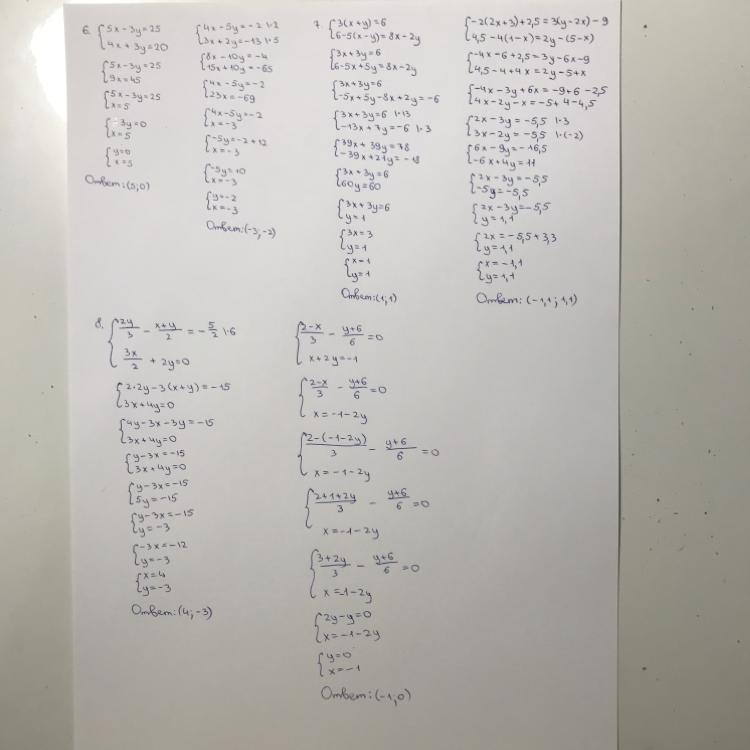 6. { 5x - 3y = 25
4x + 3y = 20
{ 5x - 3y = 25
9x = 45
{ 5x - 3y = 25
x = 5
{ -3y = 0
x = 5
{ y = 0
x = 5
Ответ: (5; 0)
{ 4x - 5y = -2 |·2
3x + 2y = -13 |·5
{ 8x - 10y = -4
15x + 10y = -65
{ 4x - 5y = -2
23x = -69
{ 4x - 5y = -2
x = -3
{ -5y = -2 + 12
x = -3
{ -5y = 10
x = -3
{ y = -2
x = -3
Ответ: (-3; -2)
7. { 3(x+y) = 6
6 - 5(x-y) = 8x - 2y
{ 3x + 3y = 6
6 - 5x + 5y = 8x - 2y
{ 3x + 3y = 6
-5x + 5y - 8x + 2y = -6
{ 3x + 3y = 6 |·13
-13x + 7y = -6 |·3
{ 39x + 39y = 78
-39x + 21y = -18
{ 3x + 3y = 6
60y = 60
{ 3x + 3y = 6
y = 1
{ 3x = 3
y = 1
{ x = 1
y = 1
Ответ: (1; 1)
{ -2(2x+3) + 2,5 = 3(y-2x) - 9
4,5 - 4(1-x) = 2y - (5-x)
{ -4x - 6 + 2,5 = 3y - 6x - 9
4,5 - 4 + 4x = 2y - 5 + x
{ -4x - 3y + 6x = -9 + 6 - 2,5
4x - 2y - x = -5 + 4 - 4,5
{ 2x - 3y = -5,5 |·3
3x - 2y = -5,5 |·(-2)
{ 6x - 9y = -16,5
-6x + 4y = 11
{ 2x - 3y = -5,5
-5y = -5,5
{ 2x - 3y = -5,5
y = 1,1
{ 2x = -5,5 + 3,3
y = 1,1
{ x = -1,1
y = 1,1
Ответ: (-1,1; 1,1)
8. { 2y/3 - (x+y)/2 = -5/2 |·6
3x/2 + 2y = 0
{ 2·2y - 3(x+y) = -15
3x + 4y = 0
{ 4y - 3x - 3y = -15
3x + 4y = 0
{ y - 3x = -15
3x + 4y = 0
{ y - 3x = -15
5y = -15
{ y - 3x = -15
y = -3
{ -3x = -12
y = -3
{ x = 4
y = -3
Ответ: (4; -3)
{ (2-x)/3 - (y+6)/6 = 0
x + 2y = -1
{ (2-x)/3 - (y+6)/6 = 0
x = -1 - 2y
{ (2-(-1-2y))/3 - (y+6)/6 = 0
x = -1 - 2y
{ (2+1+2y)/3 - (y+6)/6 = 0
x = -1 - 2y
{ (3+2y)/3 - (y+6)/6 = 0
x = -1 - 2y
{ 2y - y = 0
x = -1 - 2y
{ y = 0
x = -1
Ответ: (-1; 0)